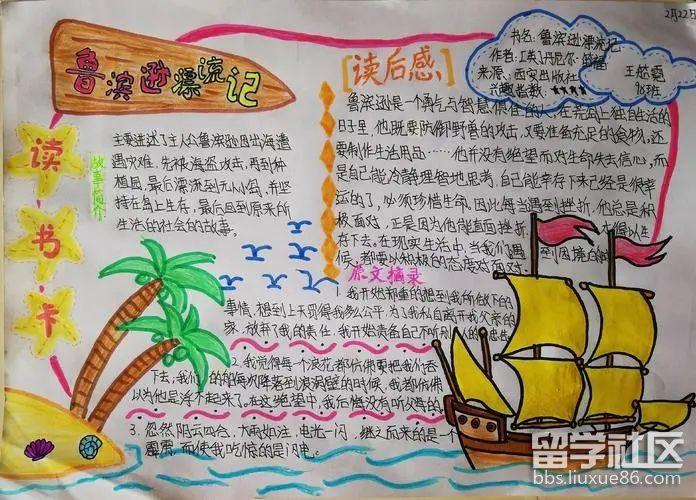 2月22日
鲁滨逊漂流记
读书卡
故事简介
主要讲述了主人公鲁滨逊因出海遭
遇灾难,先被海盗攻击,再到种
植园,最后漂流到无人岛,并坚
持在岛上生存,最后回到原来所
生活的社会的故事。
[读后感]
鲁滨逊是一个勇气与智慧俱佳的人,在荒岛上独自生活的
日子里,他既要防御野兽的攻击,又要准备充足的食物,还
要制作生活用品……他并没有绝望而对生命失去信心,而
是自己能冷静理智地思考,自己能幸存下来已经是很幸
运的了,必须珍惜生命,因此每当遇到挫折,他总是积
极面对,正是因为他能直面挫折,在得以生
存下去。在现实生活中,当我们遇到困境的
候,都要以积极的态度对面对。
书名:鲁滨逊漂流记
作者:[英]丹尼尔·笛福
来源:西安出版社
兴趣指数:★★★★
96班
原文摘录
1.我开始郑重的想到我所做下的
事情,想到上天罚得我多么公平,为了我私自离开我父亲的
家,放弃了我的责任,我开始责备自己不听别人的忠告
2.我觉得每个浪花都仿佛要把我们吞
下去,我们的船每次降落到浪涡里的时候,我都仿佛
以为他是浮不起来了。在这绝望中,我后悔没有听父母的。
3.忽然阴云四合,大雨如注,电光一闪,继之而来的是一个
霹雳,而使我吃惊的是闪电。
留学社区
bbs.liuxue86.com